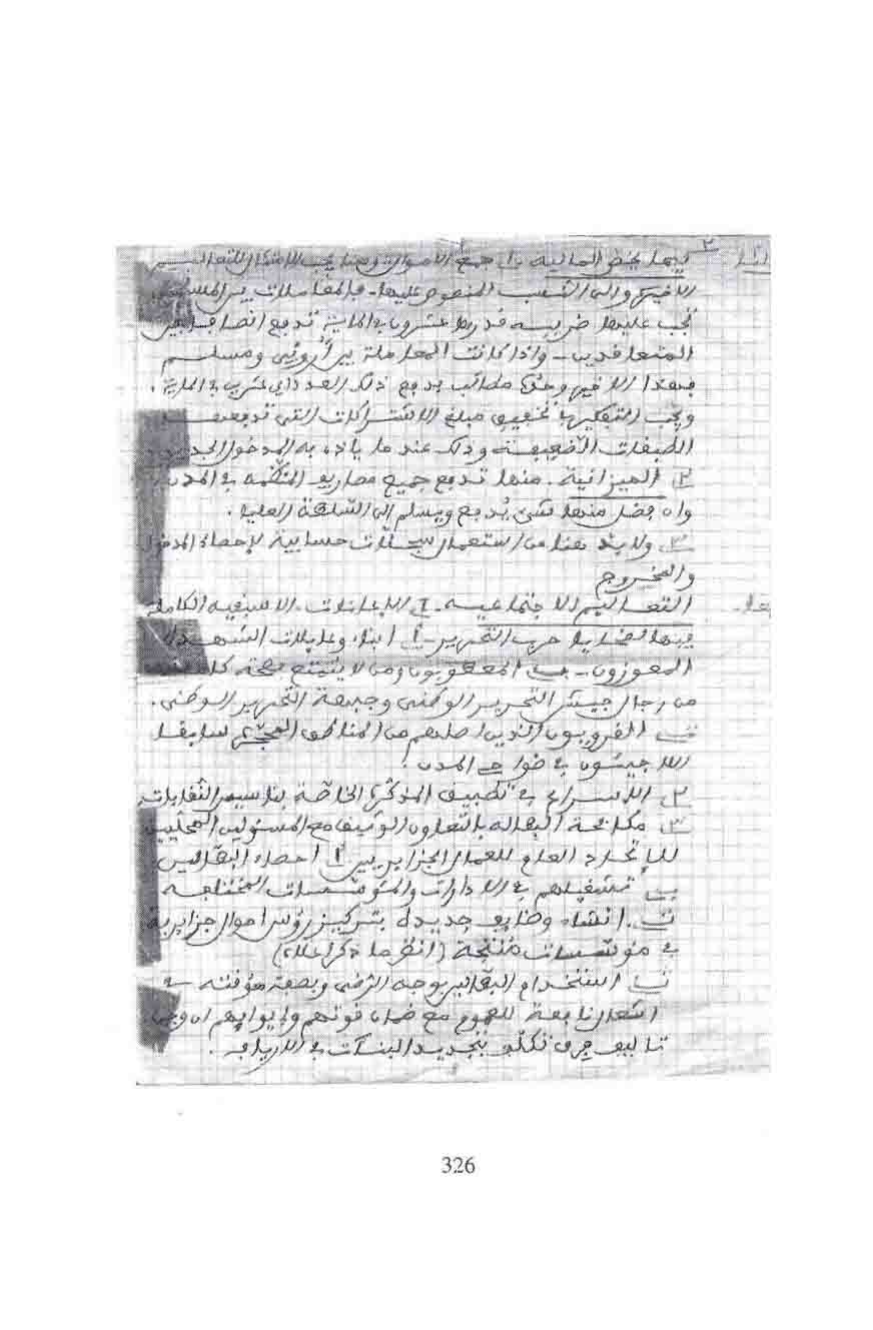 فيما يخص المالية جمع الأموال وهنا يجب الامتثال للتعاليم
الأخيرة والى النسب المنصوص عليها. فالمعاملات بين المسلمين
تجب عليها ضريبة قدرها عشرون في المائة تدفع انصافا بين
المتعاقدين - واذا كانت المعاملة بين أروبي ومسلم
فهذا الأخير وحده مطالب بدفع ذلك العدد اي عشرين في المائة.
ويجب التفكير في تخفيض مبلغ الاشتراكات التي تدفعها
الطبقات الضعيفة وذلك عند ما ياذن به المدخول الجديد
٢. الميزانية. منها تدفع جميع مصاريف المنظمة في المدن
وان فضل منها شيء يدفع ويسلم الى السلطة العليا.
٣. ولا بد هنا من استعمال سجلات حسابية لإحصاء المدخول
والمخروج
التعاليم الاجتماعية. الإعانات. الاسبقية الكاملة
فيها لضحايا حرب التحرير - أ) ابناء وعايلات الشهداء
المعوزون - ب) المعطوبون ومن لا يتمتع بصحة كاملة
من رجال جيش التحرير الوطني وجبهة التحرير الوطني.
ت) القرويون الذين اصلهم من المناطق المحجرة سابقا
اللاجئون في ضواحي المدن.
٢. الاسراع في تطبيق المذكرة الخاصة بتاسيس النقابات
٣. مكافحة البطالة بالتعاون الوثيق مع المسئولين المحليين
للاتحاد العام للعمال الجزايريين أ) احصاء البطالين
ب) تشغيلهم في الادارات والمؤسسات المختلفة
ت) انشاء وظايف جديدة بتركيز رؤس اموال جزايرية
في مؤسسات منتجة (انظر ما ذكر اعلاه)
ث) استخدام البطالين بوجه الرضى وبصفة مؤقتة في
اشغال نافعة للعموم مع ضمان قوتهم وإيوايهم ان وجب.
تاليف فرق تكلف بتجديد البنآت في الارياف.
326